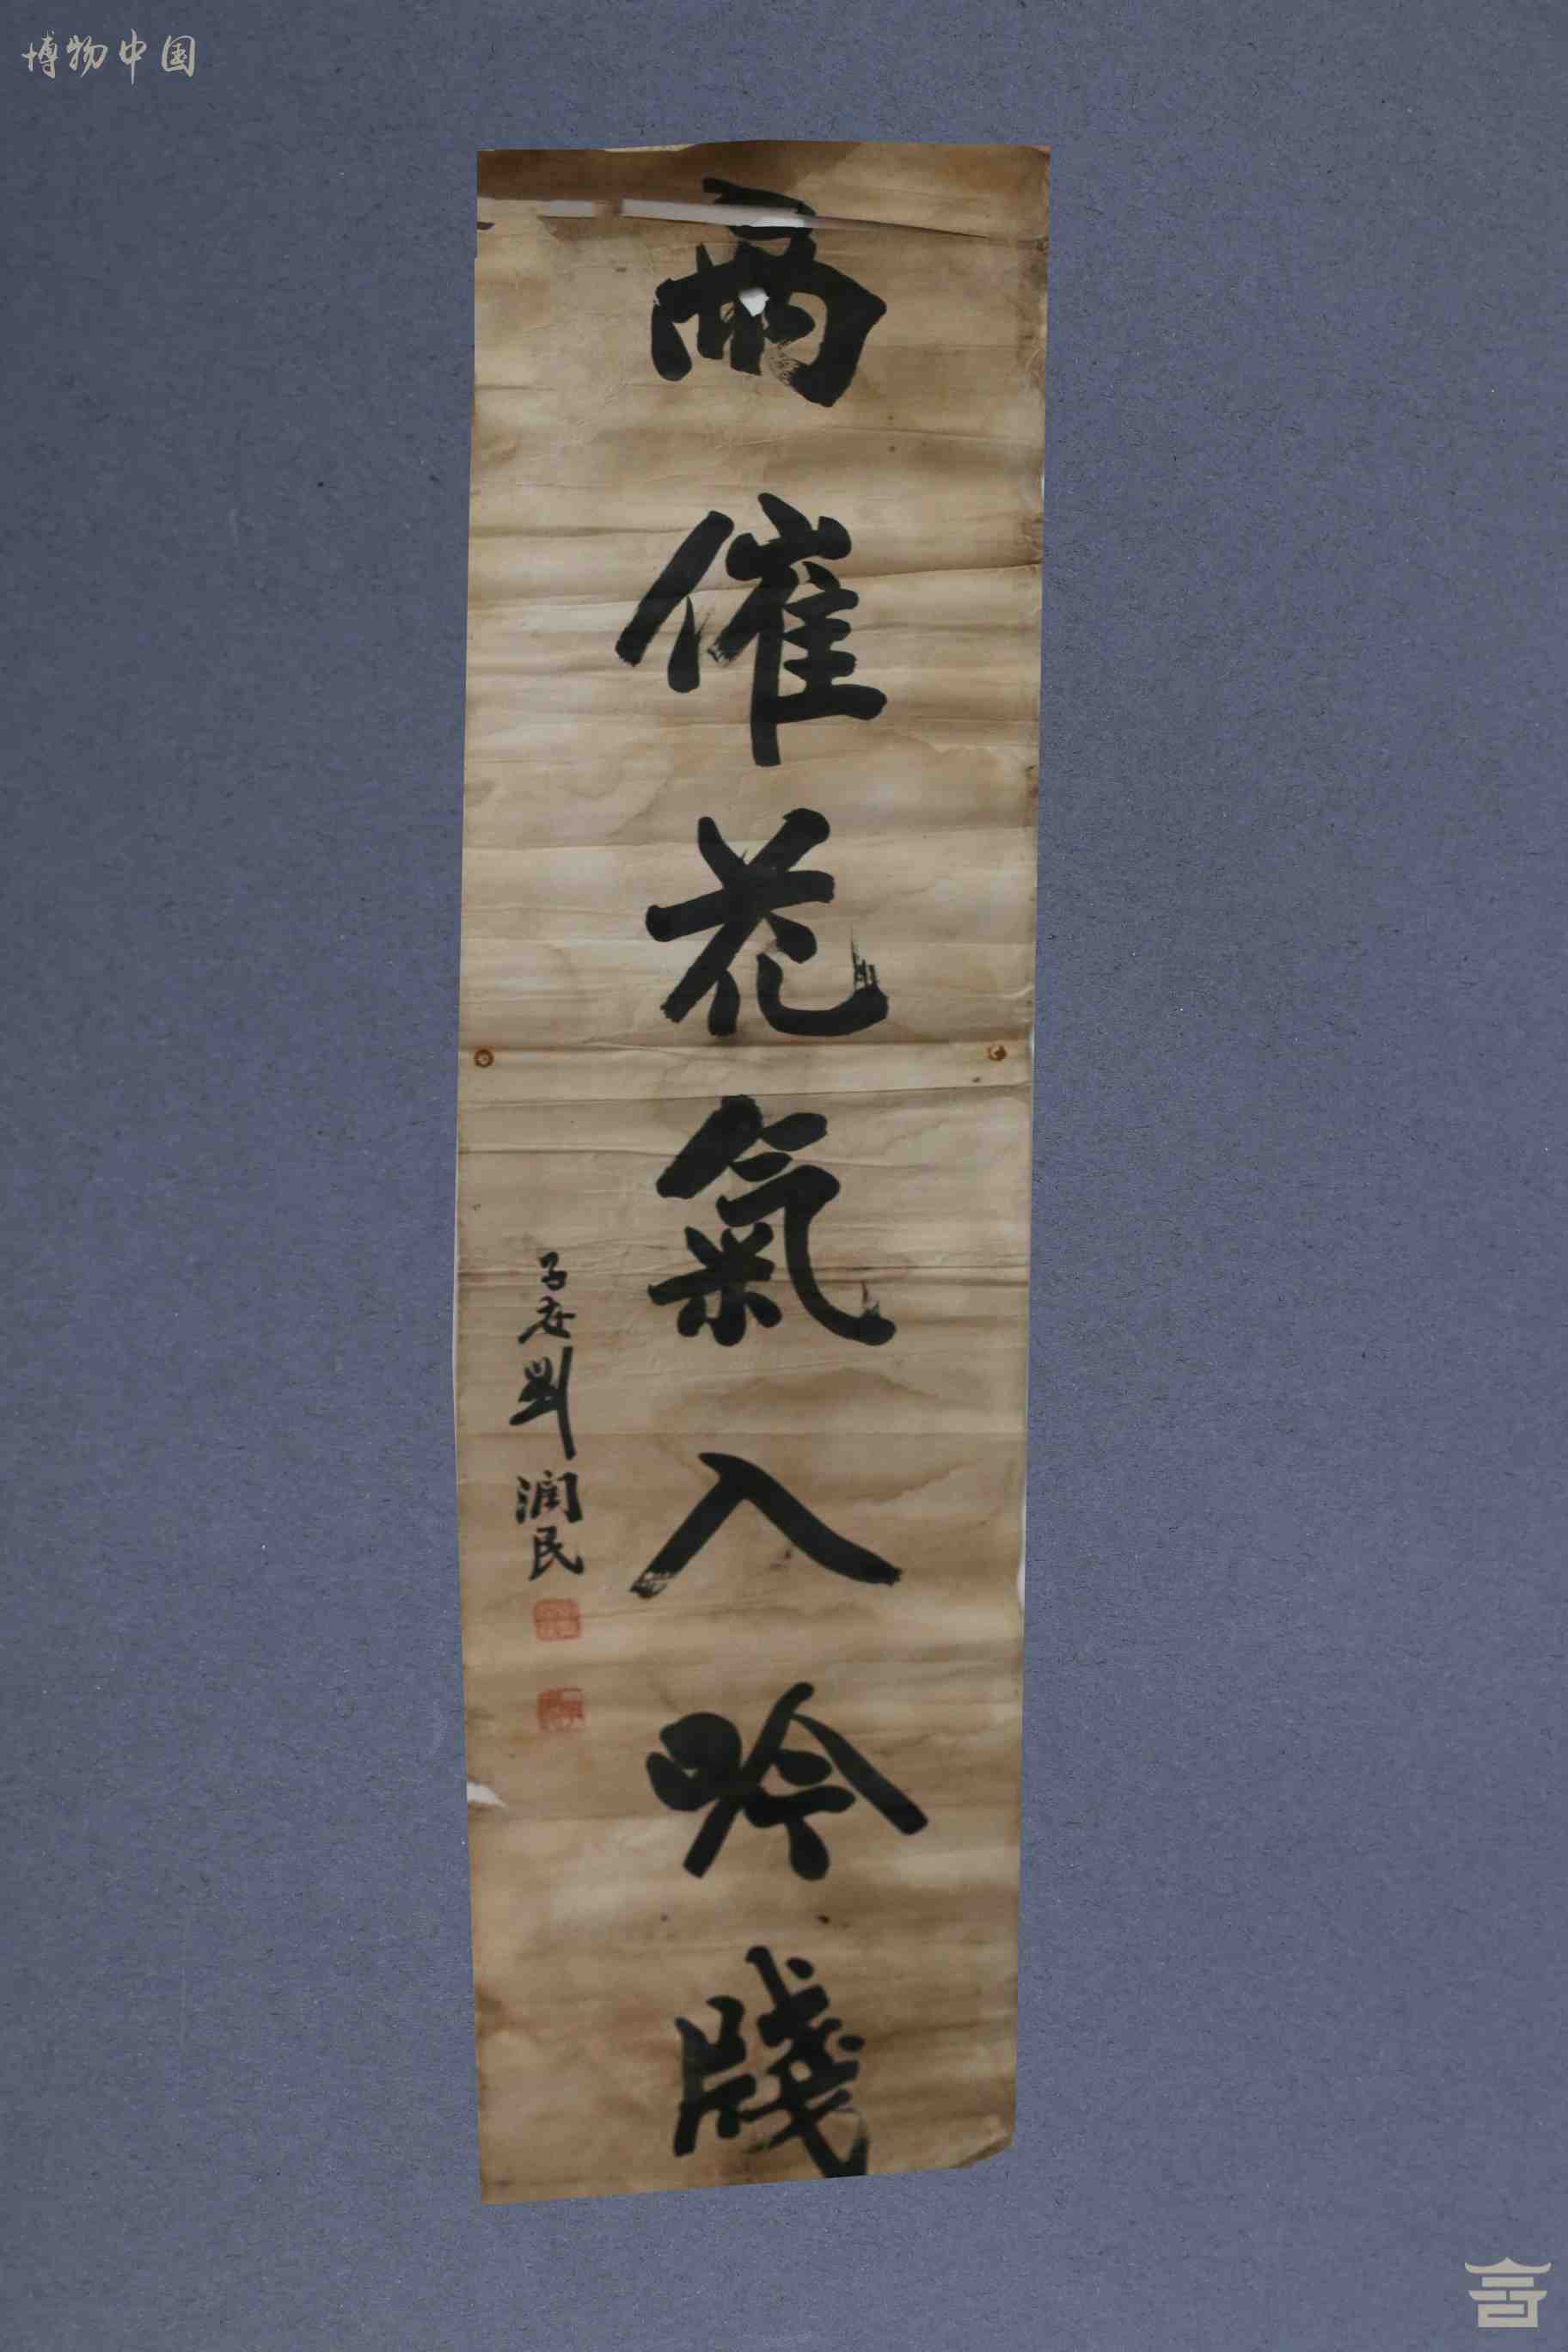 博物中国
雨催花氣入吟牋
子安劉润民